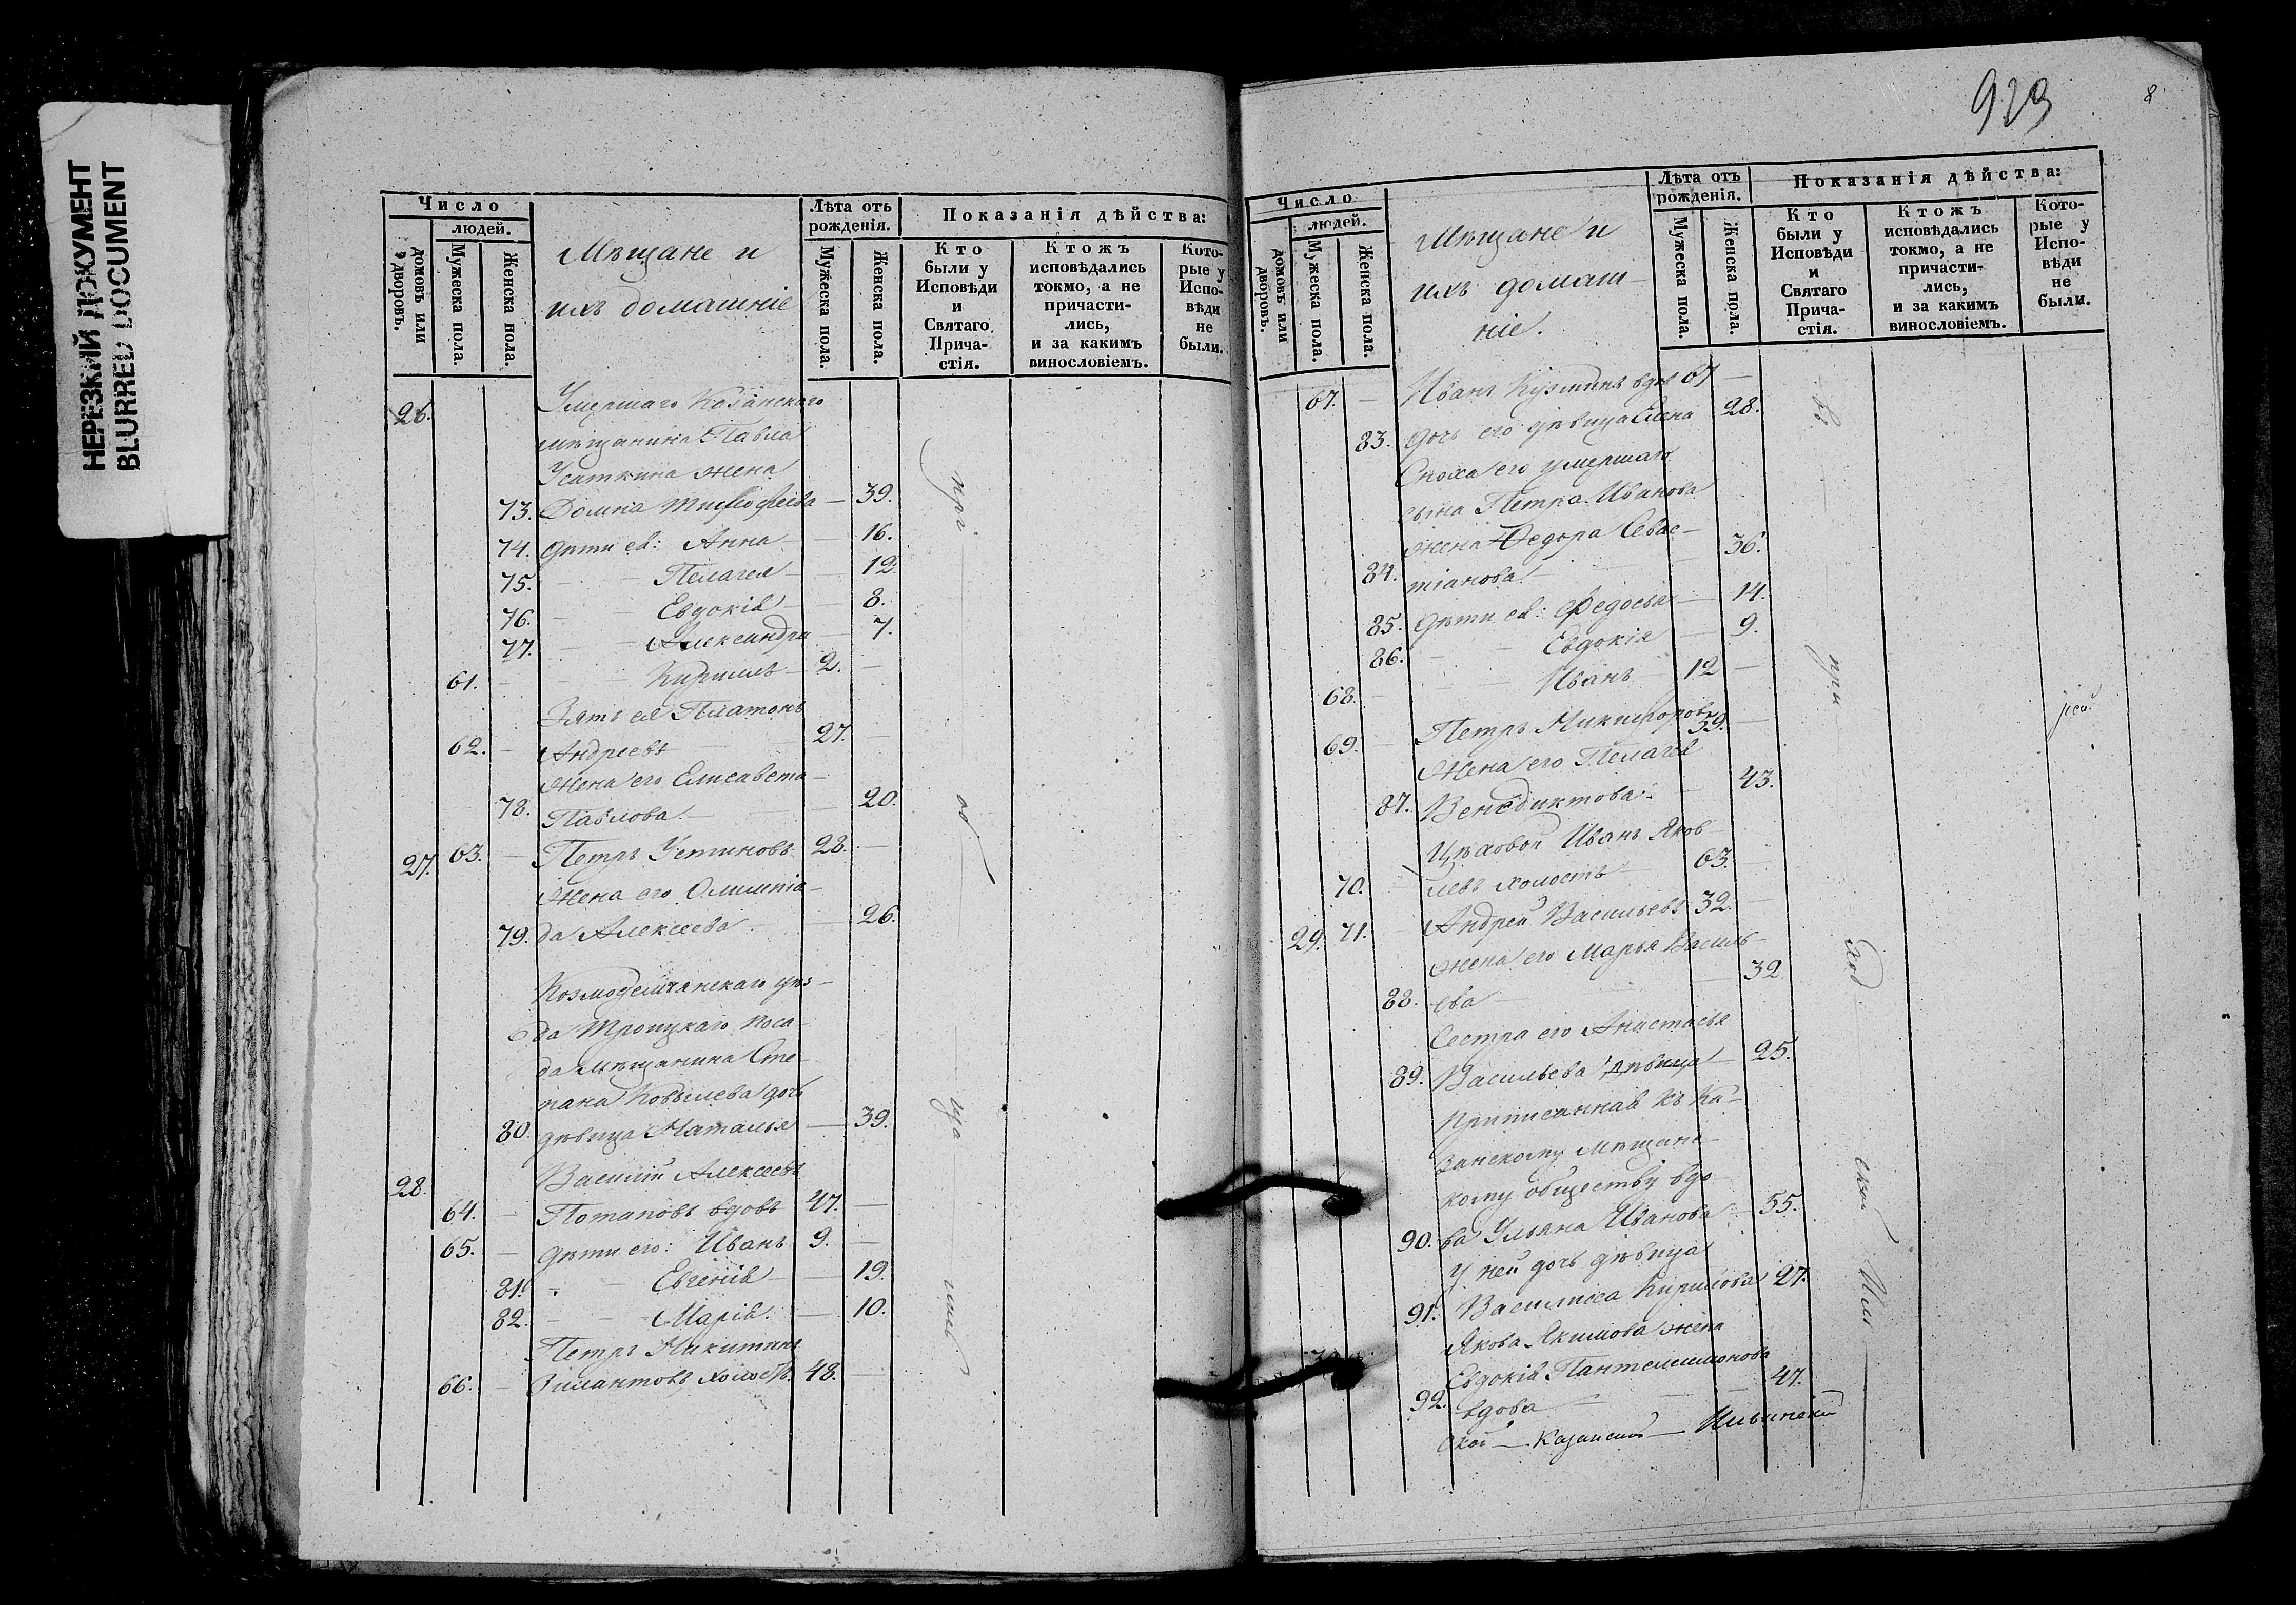 НЕРЕЗКИЙ ДОКУМЕНТ
BLURRED DOCUMENT
Число
людей.
домовъ или дворовъ.
Мужеска пола.
Женска пола.
Мѣщане и
ихъ домашніе
Лѣта отъ
рожденія.
Мужеска пола.
Женска пола.
Показанія дѣйства:
Кто
были у
Исповѣди
и
Святаго
Прича-
стія.
Ктожъ
исповѣдались
токмо, а не
причасти-
лись,
и за какимъ
винословіемъ.
Кото-
рые у
Испо-
вѣди
не
были.
26. Умершаго Казанскаго
мѣщанина Павла
Усаткина жена
73. Домна Тимофеева — 39.
74. дѣти ея: Анна — 16.
75. — Пелагея — 12.
76. — Евдокія — 8.
77. — Александра — 7.
61. — Кириллъ — 2. —
Зять ея Платонъ
62. — Андреевъ — 27. —
Жена его Елисавета
78. Павлова — 20.
27. 63. — Петръ Устиновъ 28. —
Жена его Олимпіа-
79. да Алексеева — 26.
Козмодемьянскаго уѣз-
да Троицкаго поса-
да мѣщанина Сте-
пана Ковылева дочь
80. дѣвица Наталья — 39.
28. Василій Алексеевъ
64. — Потаповъ вдовъ 47. —
65. — дѣти его: Иванъ 9. —
81. — Евгенія — 19.
82. — Марія — 10.
Петръ Никитинъ
66. — Зилантовъ холостъ 48. —
при
хо
ца
ими
929
8
Число
людей.
домовъ или дворовъ.
Мужеска пола.
Женска пола.
Мѣщане и
ихъ домаш-
ніе.
Лѣта отъ
рожденія.
Мужеска пола.
Женска пола.
Показанія дѣйства:
Кто
были у
Исповѣди
и
Святаго
Прича-
стія.
Ктожъ
исповѣдались
токмо, а не
причасти-
лись,
и за какимъ
винословіемъ.
Кото-
рые у
Испо-
вѣди
не
были.
67. — Иванъ Кузминъ вдов 67 —
83. дочь его дѣвица Елена 28.
Сноха его умершаго
сына Петра Иванова
жена Федора Севас-
84. тіанова — 36.
85. дѣти ея: Федосья — 14.
86. — Евдокія — 9.
68. — Иванъ 12 —
69. — Петръ Никифоровъ 59. —
Жена его Пелагея
87. Венедиктова — 43.
Цѣховой Иванъ Яков-
70. — левъ холостъ 63. —
29. 71. Андрей Васильевъ 32. —
жена его Марья Василь-
88. ева — 32
Сестра его Анастасья
89. Васильева дѣвица — 25.
Приписанная къ Ка-
занскому мѣщанс-
кому обществу вдо-
90. ва Ульяна Иванова — 55.
У ней дочь дѣвица
91. Василиса Кирилова 27.
Якова Якимова жена
Евдокія Пантелеимонова
92. вдова — 47.
при
ской — Казанской — Ильинской